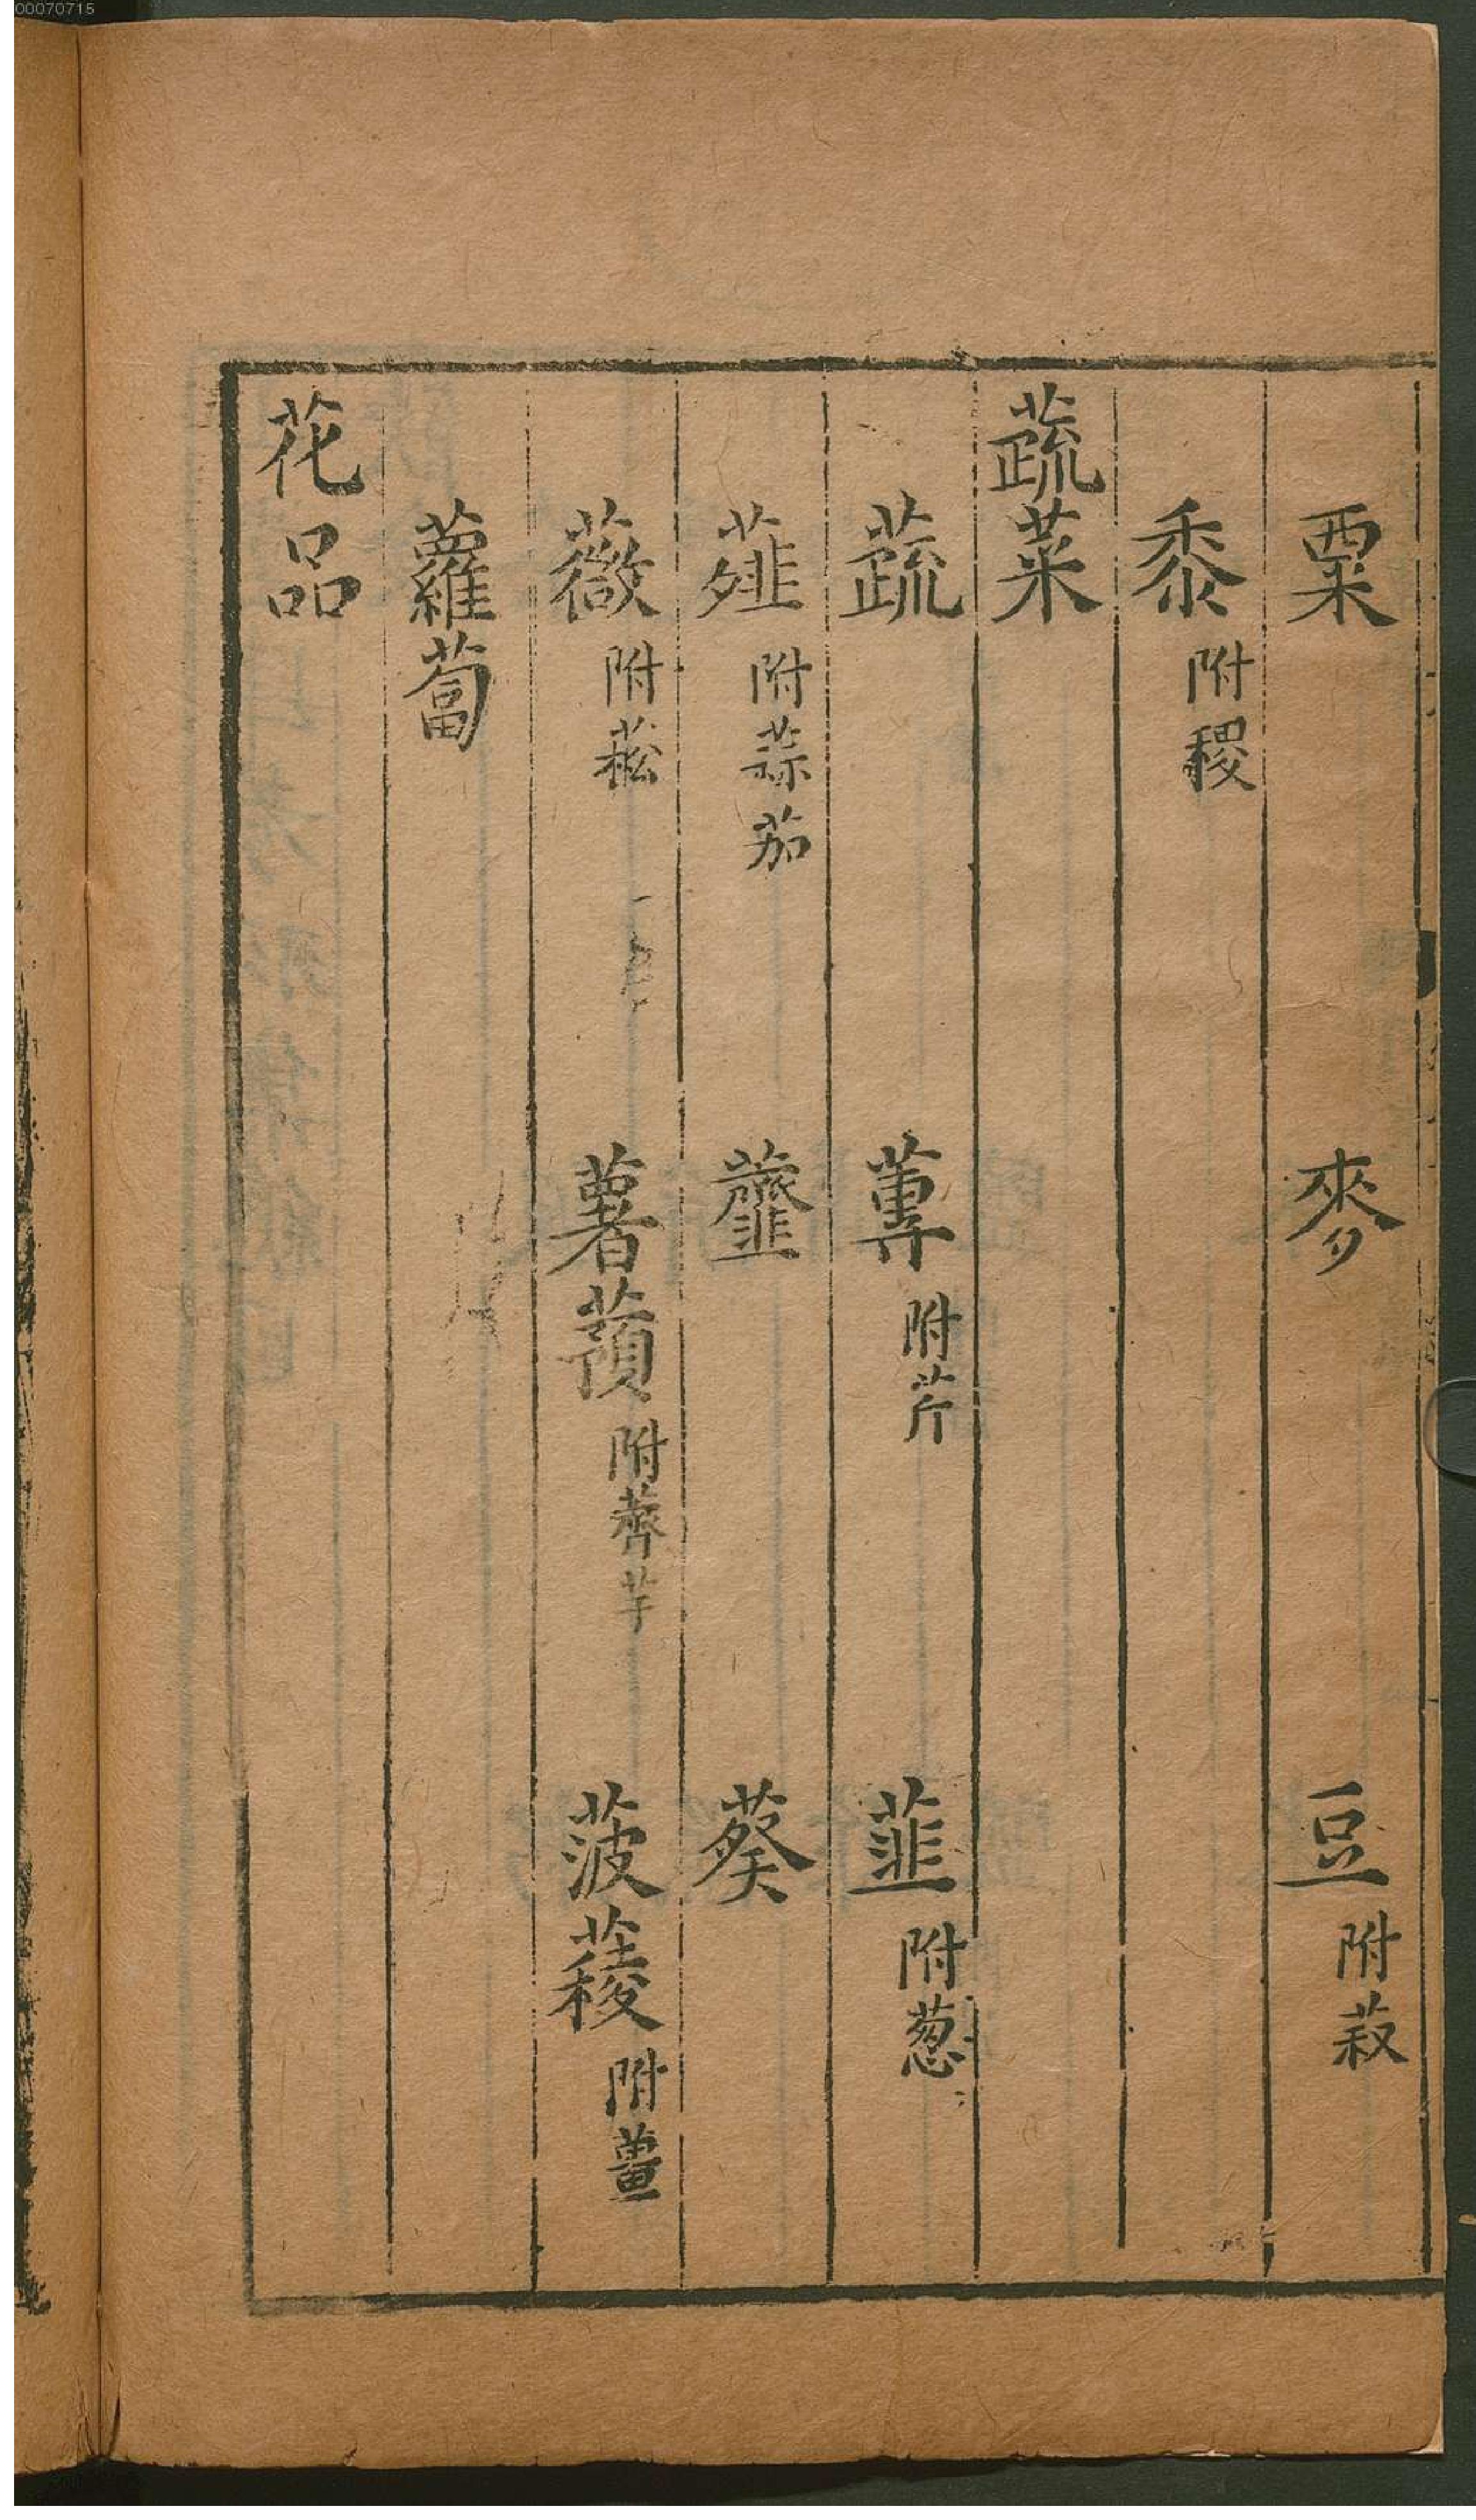 00070715
粟 麥 豆附菽
黍附稷
蔬菜
蔬 蓴附芹 韮附葱
薤附蒜茄 虀 葵
薇附菘 薯蕷附薺芋 菠薐附薑
蘿蔔
花品